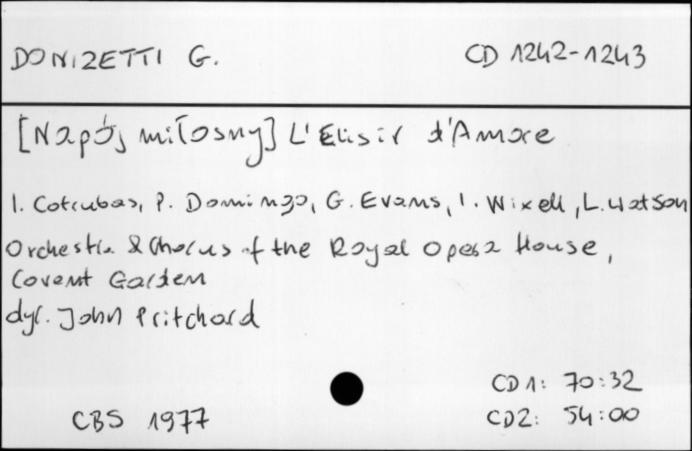 DONIZETTI G. CD 1242-1243
[Napój miłosny] L'Elisir d'Amore
I. Cotrubas, P. Domingo, G. Evans, I. Wixell, L. Watson
Orchestra & Chorus of the Royal Opera House,
Covent Garden
dyr. John Pritchard
CD1: 70:32
CBS 1977 CD2: 54:00